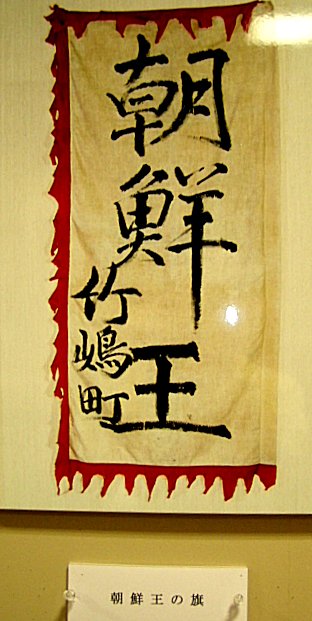 朝鮮王
竹嶋町
朝鮮王の旗